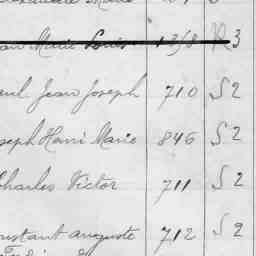 Marie Louis 1318 R 3
Jean Joseph 710 S 2
Henri Marie 846 S 2
Charles Victor 711 S 2
Constant auguste 712 S 2